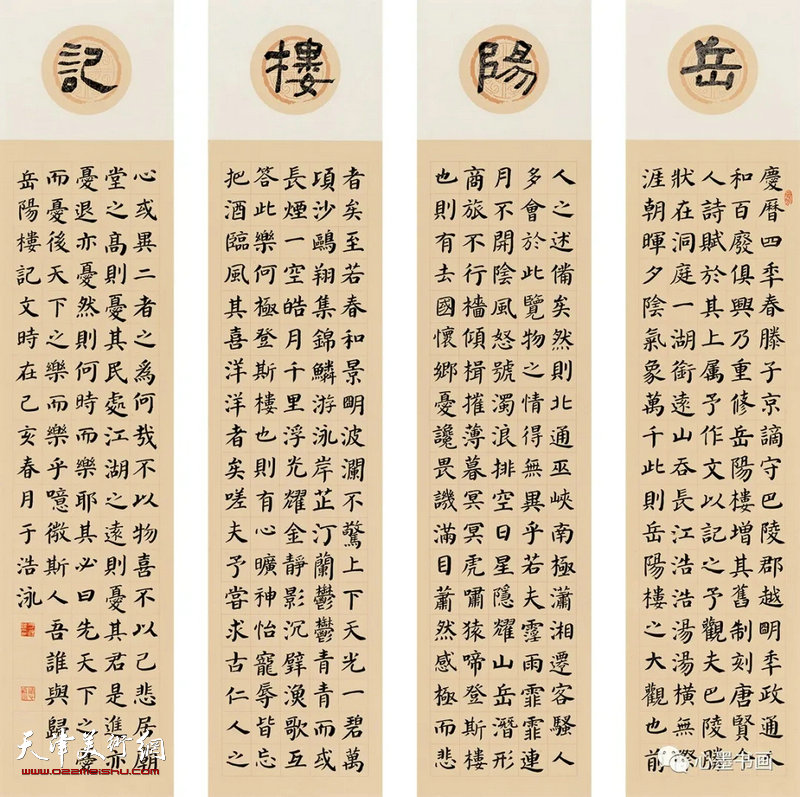 岳
慶曆四年春滕子京謫守巴陵郡越明年政通人
和百廢俱興乃重修岳陽樓增其舊制刻唐賢今
人詩賦於其上属予作文以記之予觀夫巴陵勝
狀在洞庭一湖銜遠山吞長江浩浩湯湯橫無際
涯朝暉夕陰氣象萬千此則岳陽樓之大觀也前
陽
人之述備矣然則北通巫峽南極瀟湘遷客騷人
多會於此覽物之情得無異乎若夫霪雨霏霏連
月不開陰風怒號濁浪排空日星隱耀山岳潛形
商旅不行檣傾楫摧薄暮冥冥虎嘯猿啼登斯樓
也則有去國懷鄉憂讒畏譏滿目蕭然感極而悲
樓
者矣至若春和景明波瀾不驚上下天光一碧萬
頃沙鷗翔集錦鱗游泳岸芷汀蘭鬱鬱青青而或
長煙一空皓月千里浮光耀金靜影沉璧漁歌互
答此樂何極登斯樓也則有心曠神怡寵辱皆忘
把酒臨風其喜洋洋者矣嗟夫予嘗求古仁人之
記
心或異二者之為何哉不以物喜不以己悲居廟
堂之高則憂其民處江湖之遠則憂其君是進亦
憂退亦憂然則何時而樂耶其必曰先天下之憂
而憂後天下之樂而樂乎噫微斯人吾誰與歸
岳陽樓記文時在己亥春月于浩泳
天津美術網
www.022meishu.com
心墨书画